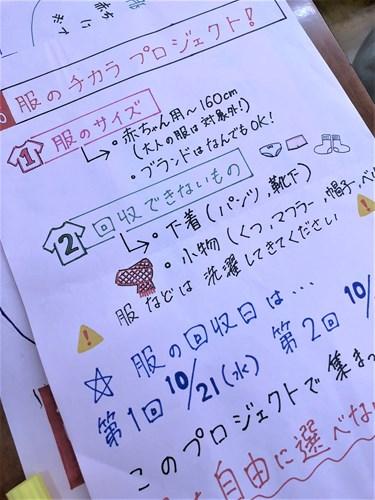 服のチカラ プロジェクト!
1 服のサイズ
・赤ちゃん用〜160cm
(大人の服は対象外!)
・ブランドはなんでもOK!
2 回収できないもの
・下着(パンツ,靴下)
・小物(くつ,マフラー,帽子,ベ
服などは洗濯してきてください
☆ 服の回収日は…
第1回 10/21(水) 第2回 10/
このプロジェクトで集まっ
自由に選べない